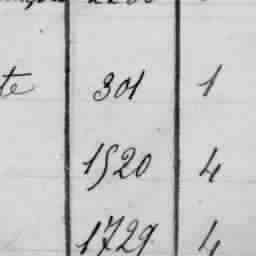 te 301 1
1520 4
1729 4